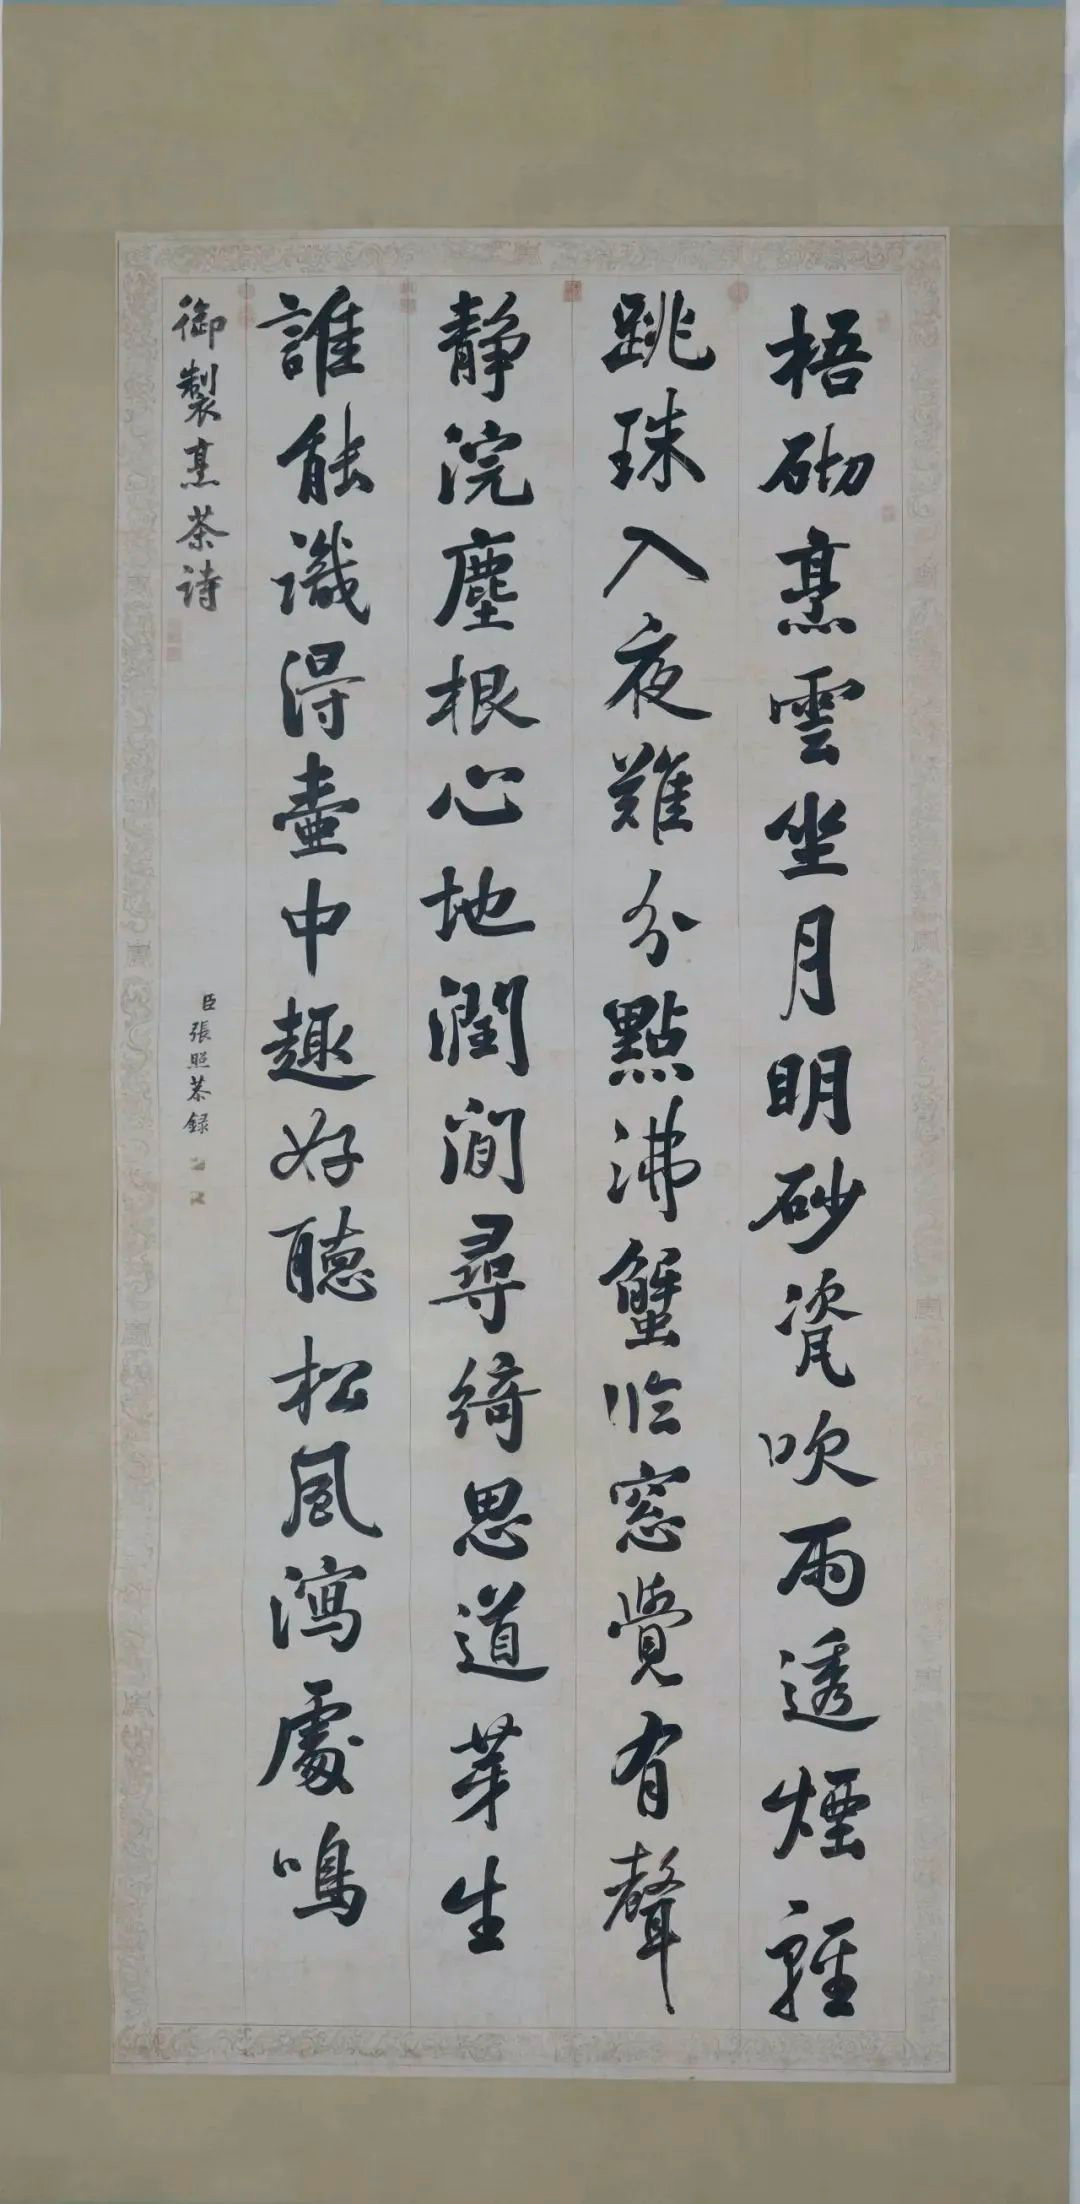 梧砌烹雲坐月明砂瓷吹雨透煙輕
跳珠入夜難分點沸蟹臨窓覺有聲
静浣塵根心地潤閒尋綺思道芽生
誰能識得壷中趣好聽松風瀉處鳴
御製烹茶詩
臣張照恭録